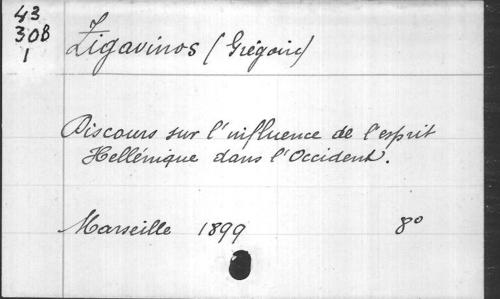 43
308
1
Zigavinos (Grégoire)
Discours sur l'influence de l'esprit
Hellénique dans l'Occident.
Marseille 1899 8°